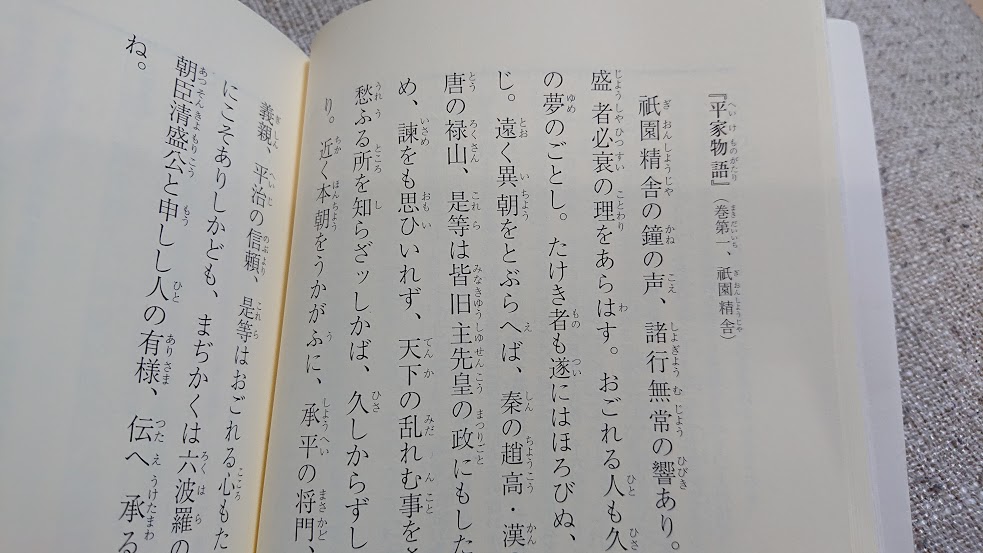 『平家物語』（巻第一、祇園精舎）
祇園精舎の鐘の声、諸行無常の響あり。
盛者必衰の理をあらはす。おごれる人も久
の夢のごとし。たけき者も遂にはほろびぬ、
じ。遠く異朝をとぶらへば、秦の趙高・漢
唐の禄山、是等は皆旧主先皇の政にもした
め、諫をも思ひいれず、天下の乱れむ事を
愁ふる所を知らざッしかば、久しからずし
り。近く本朝をうかがふに、承平の将門、
義親、平治の信頼、是等はおごれる心もた
にこそありしかども、まぢかくは六波羅の
朝臣清盛公と申しし人の有様、伝へ承る
ね。